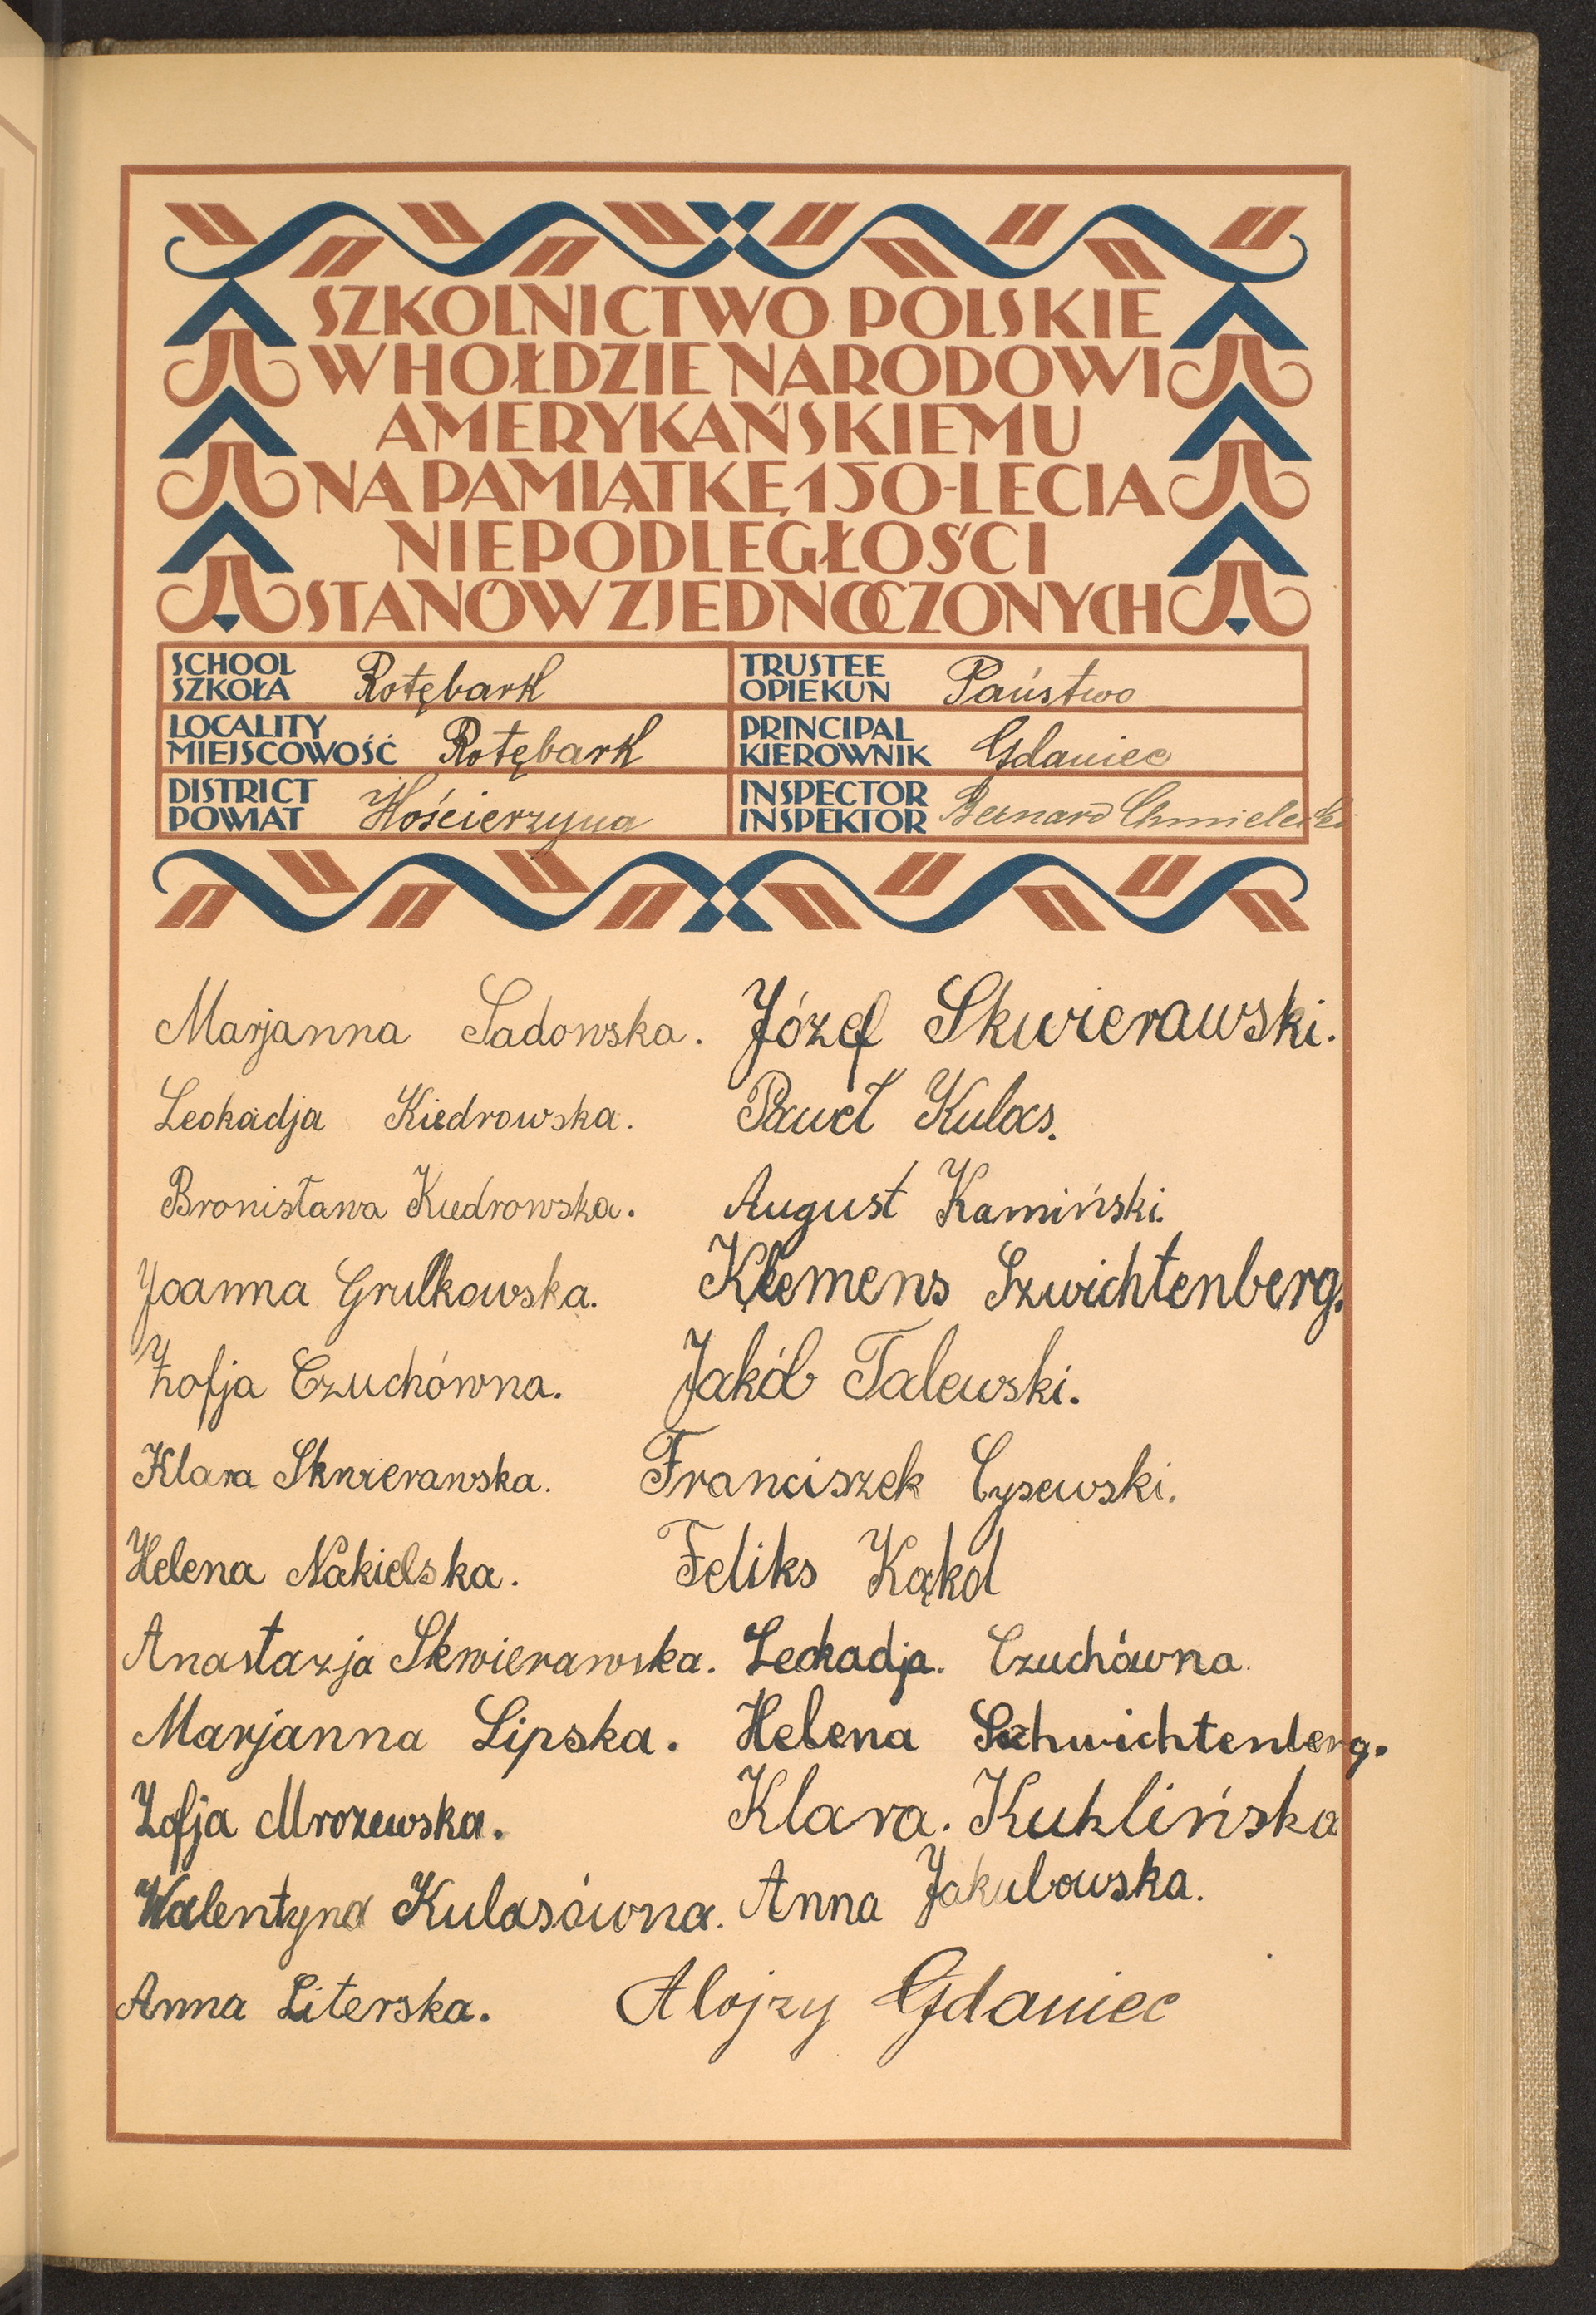 SZKOLNICTWO POLSKIE
W HOŁDZIE NARODOWI
AMERYKAŃSKIEMU
NA PAMIĄTKĘ 150-LECIA
NIEPODLEGŁOŚCI
STANÓW ZJEDNOCZONYCH
SCHOOL
SZKOŁA Rotębark
TRUSTEE
OPIEKUN Państwo
LOCALITY
MIEJSCOWOŚĆ Rotębark
PRINCIPAL
KIEROWNIK Gdaniec
DISTRICT
POWIAT Kościerzyna
INSPECTOR
INSPEKTOR Bernard Chmielecki
Marjanna Sadowska. Józef Skwierawski.
Leokadja Kiedrowska. Paweł Kulas.
Bronisława Kiedrowska. August Kamiński.
Joanna Grulkowska. Klemens Szwichtenberg.
Zofja Czuchówna. Jakób Talewski.
Klara Skwierawska. Franciszek Cysewski.
Helena Nakielska. Feliks Kąkol
Anastazja Skwierawska. Leokadja. Czuchówna.
Marjanna Lipska. Helena Schwichtenberg.
Zofja Mrozewska. Klara. Kuklińska
Walentyna Kulasówna. Anna Jakubowska.
Anna Literska. Alojzy Gdaniec